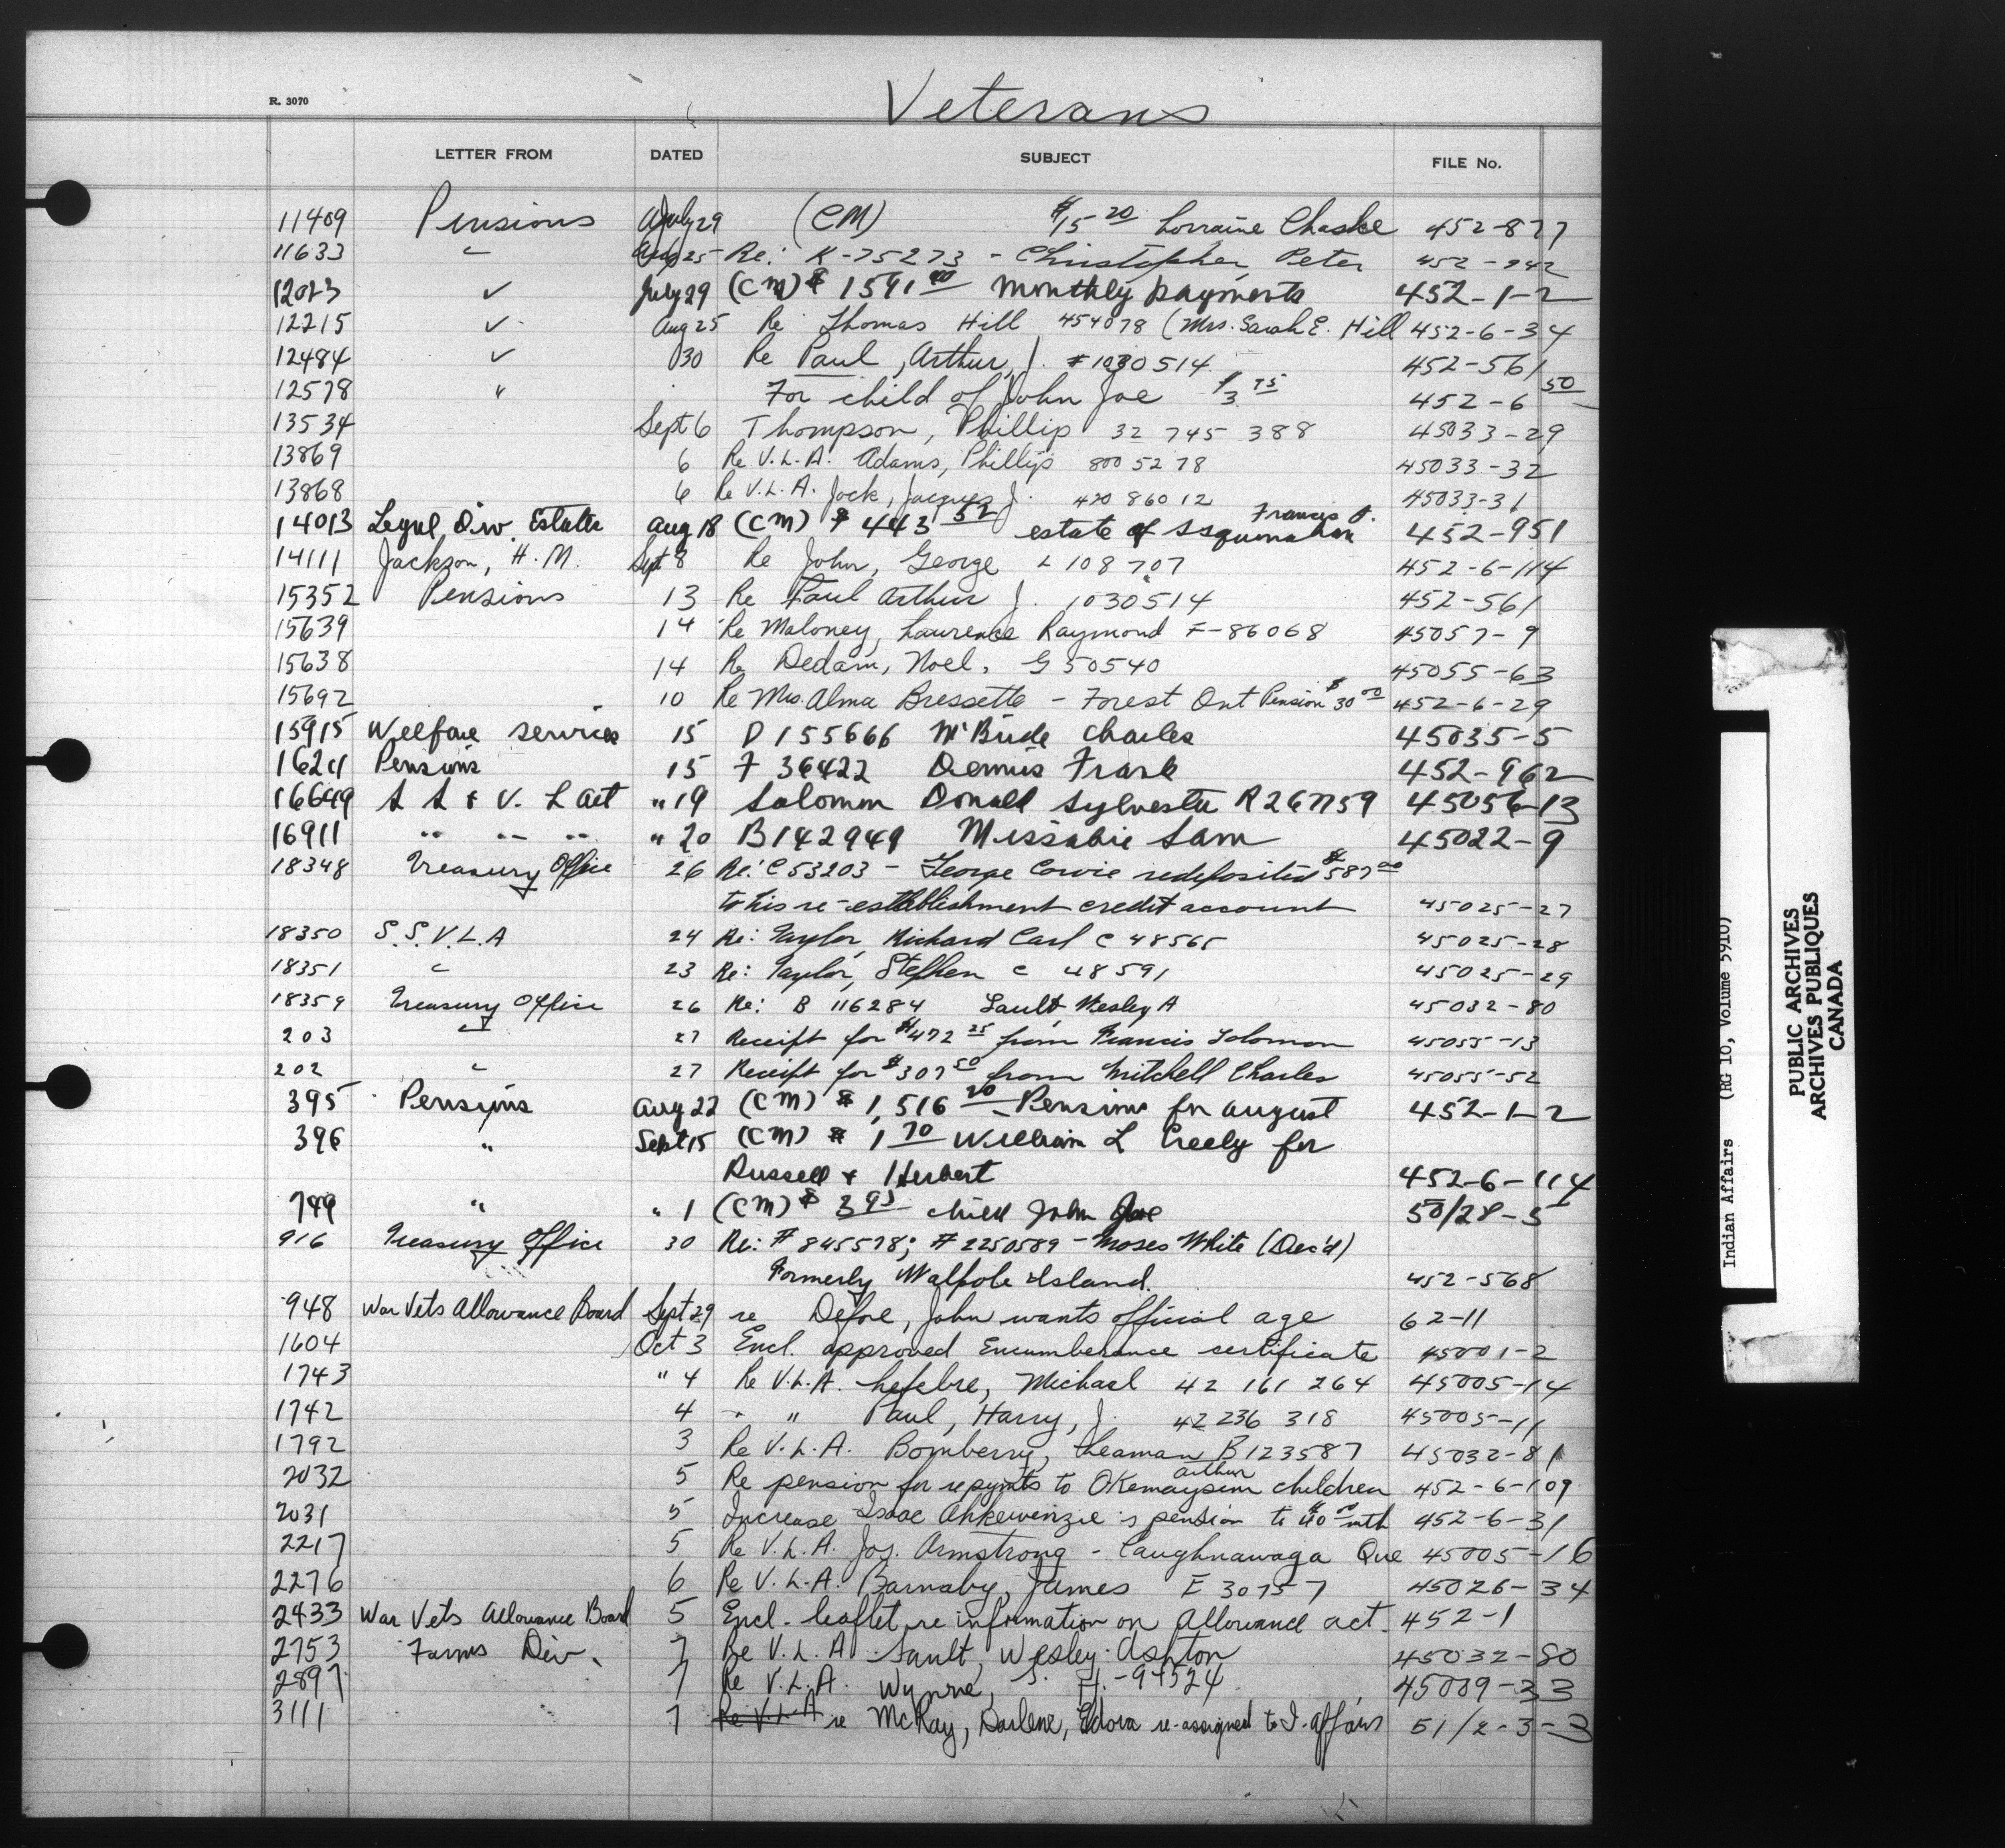 Veterans
R. 3070
LETTER FROM DATED SUBJECT FILE No.
11409 Pensions July 29 (CM) $15 20 Lorraine Chaske 452-877
11633 " Aug 25 Re: K-75273 - Christopher, Peter 452-942
12023 ✓ July 29 (CM) $1591 00 monthly payments 452-1-2
12215 ✓ Aug 25 Re Thomas Hill 454078 (Mrs. Sarah E. Hill 452-6-34
12484 ✓ 30 Re Paul, Arthur, J. #1030514 452-561
12578 " For child of John Joe $3 75 452-6 50
13534 Sept 6 Thompson, Phillip 32 745 388 45033-29
13869 6 Re V.L.A. Adams, Phillip 800 52 78 45033-32
13868 6 Re V.L.A. Jock, Jacques J. 420 860 12 45033-31
14013 Legal Div. Estates Aug 18 (CM) $443 52 estate of Francis J. 452-951
14111 Jackson, H.M. Sept 8 Re John, George L 108 707 452-6-114
15352 Pensions 13 Re Paul Arthur J. 1030514 452-561
15639 14 Re Maloney, Laurence Raymond F-86068 45057-9
15638 14 Re Dedam, Noel, G 50540 45055-63
15692 10 Re Mrs. Alma Bressette - Forest Ont Pension $30 00 452-6-29
15915 Welfare services 15 D 155666 McBride Charles 45035-5
16211 Pensions 15 F 36422 Dennis Frank 452-962
16649 S S & V. L act " 19 Solomon Donald Sylvester R267759 45056-13
16911 " " " " 20 B142949 Missabie Sam 45022-9
18348 Treasury Office 26 Re: C53203 - George Cowie redeposited $587 00
to his re-establishment credit account 45025-27
18350 S.S.V.L.A 24 Re: Taylor, Richard Carl C 48565 45025-28
18351 " 23 Re: Taylor, Stephen C 48591 45025-29
18359 Treasury Office 26 Re: B 116284 Sault, Wesley A 45032-80
203 " 27 Receipt for $472 25 from Francis Solomon 45055-13
202 " 27 Receipt for $307 50 from Mitchell Charles 45055-52
395 Pensions Aug 22 (CM) $1,516 20 Pensions for august 452-1-2
396 " Sept 15 (CM) $1 70 William L Creely for
Russell & Herbert 452-6-114
749 " " 1 (CM) $3 95 child John Joe 50/28-5
916 Treasury Office 30 Re: #845578; #2250589 - Moses White (Dec'd)
Formerly Walpole Island. 452-568
948 War Vets Allowance Board Sept 29 re Defoe, John wants official age 62-11
1604 Oct 3 Encl. approved Encumberance certificate 45001-2
1743 " 4 Re V.L.A. Lefebre, Michael 42 161 264 45005-14
1742 4 " " Paul, Harry, J. 42 236 318 45005-11
1792 3 Re V.L.A. Bomberry, Leaman B123587 45032-81
2032 5 Re pension for repymts to Okemaysim Arthur children 452-6-109
2031 5 Increase Isaac Ahkewenzie's pension to $40 00 mth 452-6-31
2217 5 Re V.L.A. Jos. Armstrong - Caughnawaga Que 45005-16
2276 6 Re V.L.A. Barnaby, James E 30757 45026-34
2433 War Vets Allowance Board 5 Encl. leaflet re information on Allowance act. 452-1
2753 Farms Div. 7 Re V.L.A. Sault, Wesley Ashton 45032-80
2897 7 Re V.L.A. Wynne, S. H.-94524 45009-33
3111 7 Re V.L.A re McKay, Darlene, Edora re-assigned to I. Affairs 51/2-3-3
Indian Affairs (RG 10, Volume 5910)
PUBLIC ARCHIVES
ARCHIVES PUBLIQUES
CANADA